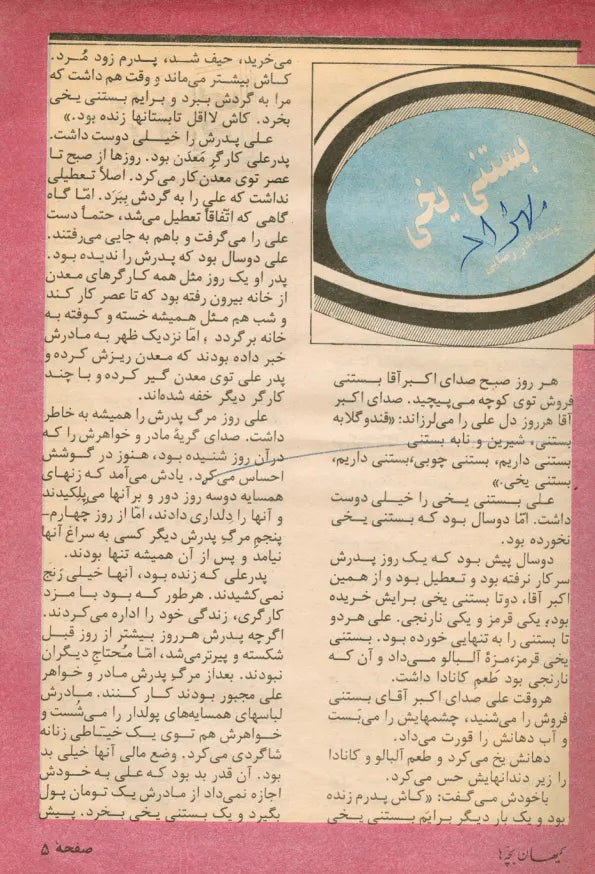 بستنی یخی
هر روز صبح صدای اکبر آقا بستنی
فروش توی کوچه می‌پیچید. صدای اکبر
آقا هرروز دل علی را می‌لرزاند: «قندوگلابه
بستنی، شیرین و نابه بستنی
بستنی داریم، بستنی چوبی،بستنی داریم،
بستنی یخی.»
علی بستنی یخی را خیلی دوست
داشت. امّا دوسال بود که بستنی یخی
نخورده بود.
دوسال پیش بود که یک روز پدرش
سرکار نرفته بود و تعطیل بود و از همین
اکبر آقا، دوتا بستنی یخی برایش خریده
بود؛ یکی قرمز و یکی نارنجی. علی هردو
تا بستنی را به تنهایی خورده بود. بستنی
یخی قرمز،مزهٔ آلبالو می‌داد و آن که
نارنجی بود طَعم کانادا داشت.
هروقت علی صدای اکبر آقای بستنی
فروش را می‌شنید، چشمهایش را می‌بَست
و آب دهانش را قورت می‌داد.
دهانش یخ می‌کرد و طعم آلبالو و کانادا
را زیر دندانهایش حس می‌کرد.
باخودش می‌گفت: «کاش پدرم زنده
بود و یک بار دیگر برایَم بستنی یخی
می‌خرید، حیف شد، پدرم زود مُرد.
کاش بیشتر می‌ماند و وقت هم داشت که
مرا به گردش ببرد و برایم بستنی یخی
بخرد. کاش لااقل تابستانها زنده بود.»
علی پدرش را خیلی دوست داشت.
پدرعلی کارگر مَعدَن بود. روزها از صبح تا
عصر توی معدن کار می‌کرد. اصلاً تعطیلی
نداشت که علی را به گردش ببَرَد. امّا گاه
گاهی که اتّفاقاً تعطیل می‌شد، حتماً دست
علی را می‌گرفت و باهم به جایی می‌رفتند.
علی دوسال بود که پدرش را ندیده بود.
پدر او یک روز مثل همه کارگرهای معدن
از خانه بیرون رفته بود که تا عصر کار کند
و شب هم مثل همیشه خسته و کوفته به
خانه برگردد ، امّا نزدیک ظهر به مادرش
خبر داده بودند که معدن ریزش کرده و
پدر علی توی معدن گیر کرده و با چند
کارگر دیگر خفه شده‌اند.
علی روز مرگ پدرش را همیشه به خاطر
داشت. صدای گریهٔ مادر و خواهرش را که
درآن روز شنیده بود، هنوز در گوشش
احساس می‌کرد. یادش می‌آمد که زنهای
همسایه دوسه روز دور و برآنها می‌پلکیدند
و آنها را دِلداری دادند، امّا از روز چهارم–
پنجمِ مرگِ پدرش دیگر کسی به سراغ آنها
نیامد و پس از آن همیشه تنها بودند.
پدرعلی که زنده بود، آنها خیلی رَنج
نمی‌کشیدند. هرطور که بود با مزد
کارگری، زندگی خود را اداره می‌کردند.
اگرچه پدرش هرروز بیشتر از روز قبل
شکسته و پیرتر می‌شد، امّا مُحتاج دیگران
نبودند. بعداز مرگ پدرش مادر و خواهر
علی مجبور بودند کار کنند. مادرش
لباسهای همسایه‌های پولدار را می‌شُست و
خواهرش هم توی یک خیّاطی زنانه
شاگردی می‌کرد. وضع مالی آنها خیلی بد
بود. آن قدر بد بود که علی به خودش
اجازه نمی‌داد از مادرش یک تومان پول
بگیرد و یک بستنی یخی بخرد. پیش
کیهان بچّه‌ها
صفحهٔ ۵